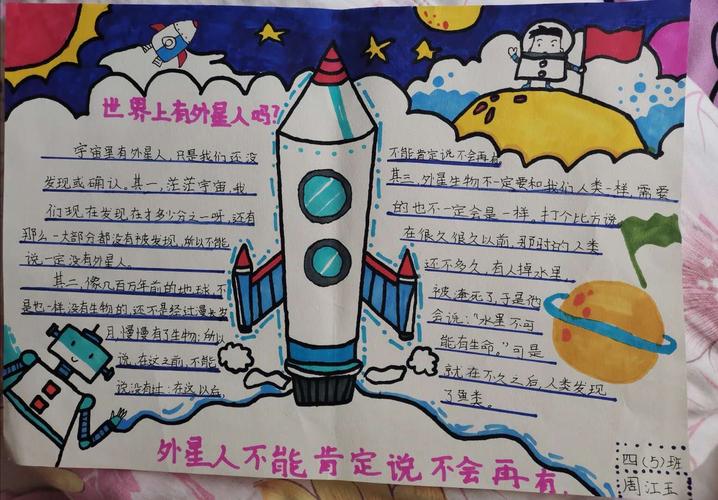 世界上有外星人吗?
宇宙里有外星人,只是我们还没
发现或确认。其一,茫茫宇宙,我
们现在发现在才多少分之一呀,还有
那么一大部分都没有被发现,所以不能
说一定没有外星人。
其二,像几百万年前的地球,不
是也一样没有生物的,还不是经过漫长岁
月慢慢有了生物;所以
说,在这之前,不能
说没有过;在这以后,
不能肯定说不会再有
其三,外星生物不一定要和我们人类一样,需要
的也不一定会是一样。打个比方说,
在很久很久以前,那时的人类
还不多久,有人掉水里,
被淹死了,于是他
会说:“水里不可
能有生命。”可是
就在不久之后,人类发现
了鱼类。
外星人不能肯定说不会再有
四(5)班
周江玉